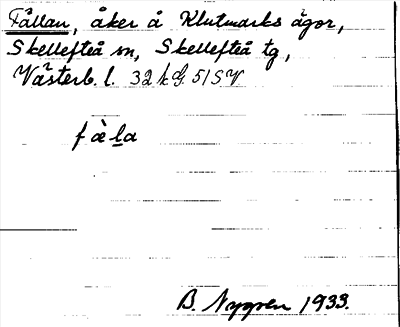 Fällan, åker å Klutmarks ägor,
Skellefteå sn, Skellefteå tg,
Västerb. l. 32 k G. 51 SV
f ὰ l̲a
B. Nygren 1933.